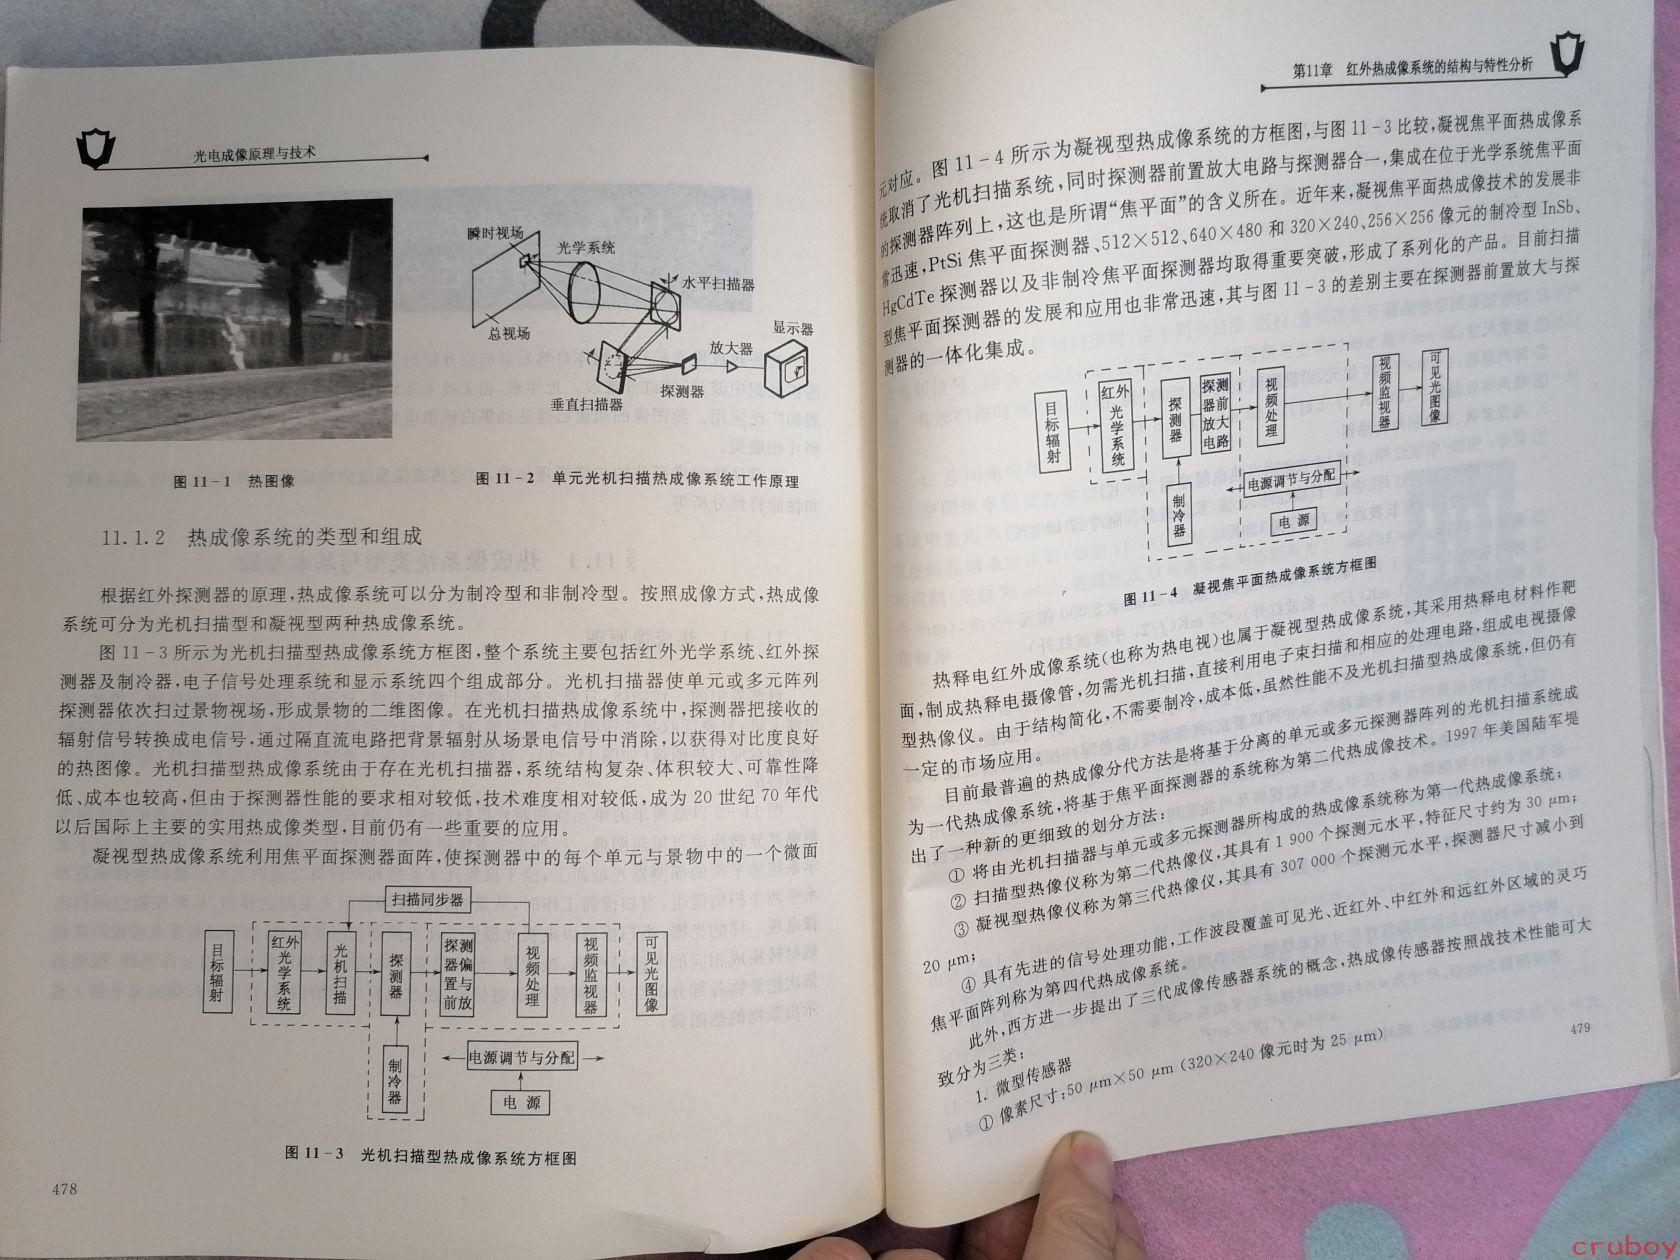 光电成像原理与技术
瞬时视场
光学系统
水平扫描器
总视场
显示器
放大器
探测器
垂直扫描器
图 11-1 热图像
图 11-2 单元光机扫描热成像系统工作原理
11.1.2 热成像系统的类型和组成
根据红外探测器的原理,热成像系统可以分为制冷型和非制冷型。按照成像方式,热成像
系统可分为光机扫描型和凝视型两种热成像系统。
图 11-3 所示为光机扫描型热成像系统方框图,整个系统主要包括红外光学系统、红外探
测器及制冷器,电子信号处理系统和显示系统四个组成部分。光机扫描器使单元或多元阵列
探测器依次扫过景物视场,形成景物的二维图像。在光机扫描热成像系统中,探测器把接收的
辐射信号转换成电信号,通过隔直流电路把背景辐射从场景电信号中消除,以获得对比度良好
的热图像。光机扫描型热成像系统由于存在光机扫描器,系统结构复杂、体积较大、可靠性降
低、成本也较高,但由于探测器性能的要求相对较低,技术难度相对较低,成为 20 世纪 70 年代
以后国际上主要的实用热成像类型,目前仍有一些重要的应用。
凝视型热成像系统利用焦平面探测器面阵,使探测器中的每个单元与景物中的一个微面
扫描同步器
目标辐射
红外光学系统
光机扫描
探测器
探测器偏置与前放
视频处理
视频监视器
可见光图像
制冷器
电源调节与分配
电 源
图 11-3 光机扫描型热成像系统方框图
478
第11章 红外热成像系统的结构与特性分析
元对应。图 11-4 所示为凝视型热成像系统的方框图,与图 11-3 比较,凝视焦平面热成像系
统取消了光机扫描系统,同时探测器前置放大电路与探测器合一,集成在位于光学系统焦平面
的探测器阵列上,这也是所谓“焦平面”的含义所在。近年来,凝视焦平面热成像技术的发展非
常迅速,PtSi 焦平面探测器、512×512、640×480 和 320×240、256×256 像元的制冷型 InSb、
HgCdTe 探测器以及非制冷焦平面探测器均取得重要突破,形成了系列化的产品。目前扫描
型焦平面探测器的发展和应用也非常迅速,其与图 11-3 的差别主要在探测器前置放大与探
测器的一体化集成。
目标辐射
红外光学系统
探测器
探测器前放大电路
视频处理
视频监视器
可见光图像
制冷器
电源调节与分配
电 源
图 11-4 凝视焦平面热成像系统方框图
热释电红外成像系统(也称为热电视)也属于凝视型热成像系统,其采用热释电材料作靶
面,制成热释电摄像管,勿需光机扫描,直接利用电子束扫描和相应的处理电路,组成电视摄像
型热像仪。由于结构简化,不需要制冷,成本低,虽然性能不及光机扫描型热成像系统,但仍有
一定的市场应用。
目前最普遍的热成像分代方法是将基于分离的单元或多元探测器阵列的光机扫描系统成
为一代热成像系统,将基于焦平面探测器的系统称为第二代热成像技术。1997 年美国陆军堤
出了一种新的更细致的划分方法:
① 将由光机扫描器与单元或多元探测器所构成的热成像系统称为第一代热成像系统;
② 扫描型热像仪称为第二代热像仪,其具有 1 900 个探测元水平,特征尺寸约为 30 μm;
③ 凝视型热像仪称为第三代热像仪,其具有 307 000 个探测元水平,探测器尺寸减小到
20 μm;
④ 具有先进的信号处理功能,工作波段覆盖可见光、近红外、中红外和远红外区域的灵巧
焦平面阵列称为第四代热成像系统。
此外,西方进一步提出了三代成像传感器系统的概念,热成像传感器按照战技术性能可大
致分为三类:
1. 微型传感器
① 像素尺寸:50 μm×50 μm (320×240 像元时为 25 μm)
479
cruboy